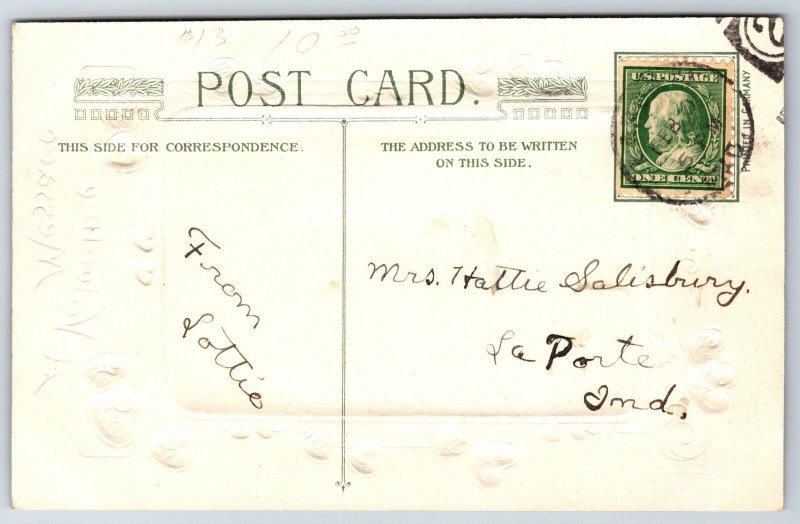 $13 10 00
POST CARD.
THIS SIDE FOR CORRESPONDENCE.
THE ADDRESS TO BE WRITTEN
ON THIS SIDE.
U.S. POSTAGE
ONE CENT
PRINTED IN GERMANY
FEB
2
From
Lottie
Mrs. Hattie Salisbury.
La Porte
Ind.
A Valentine
Message